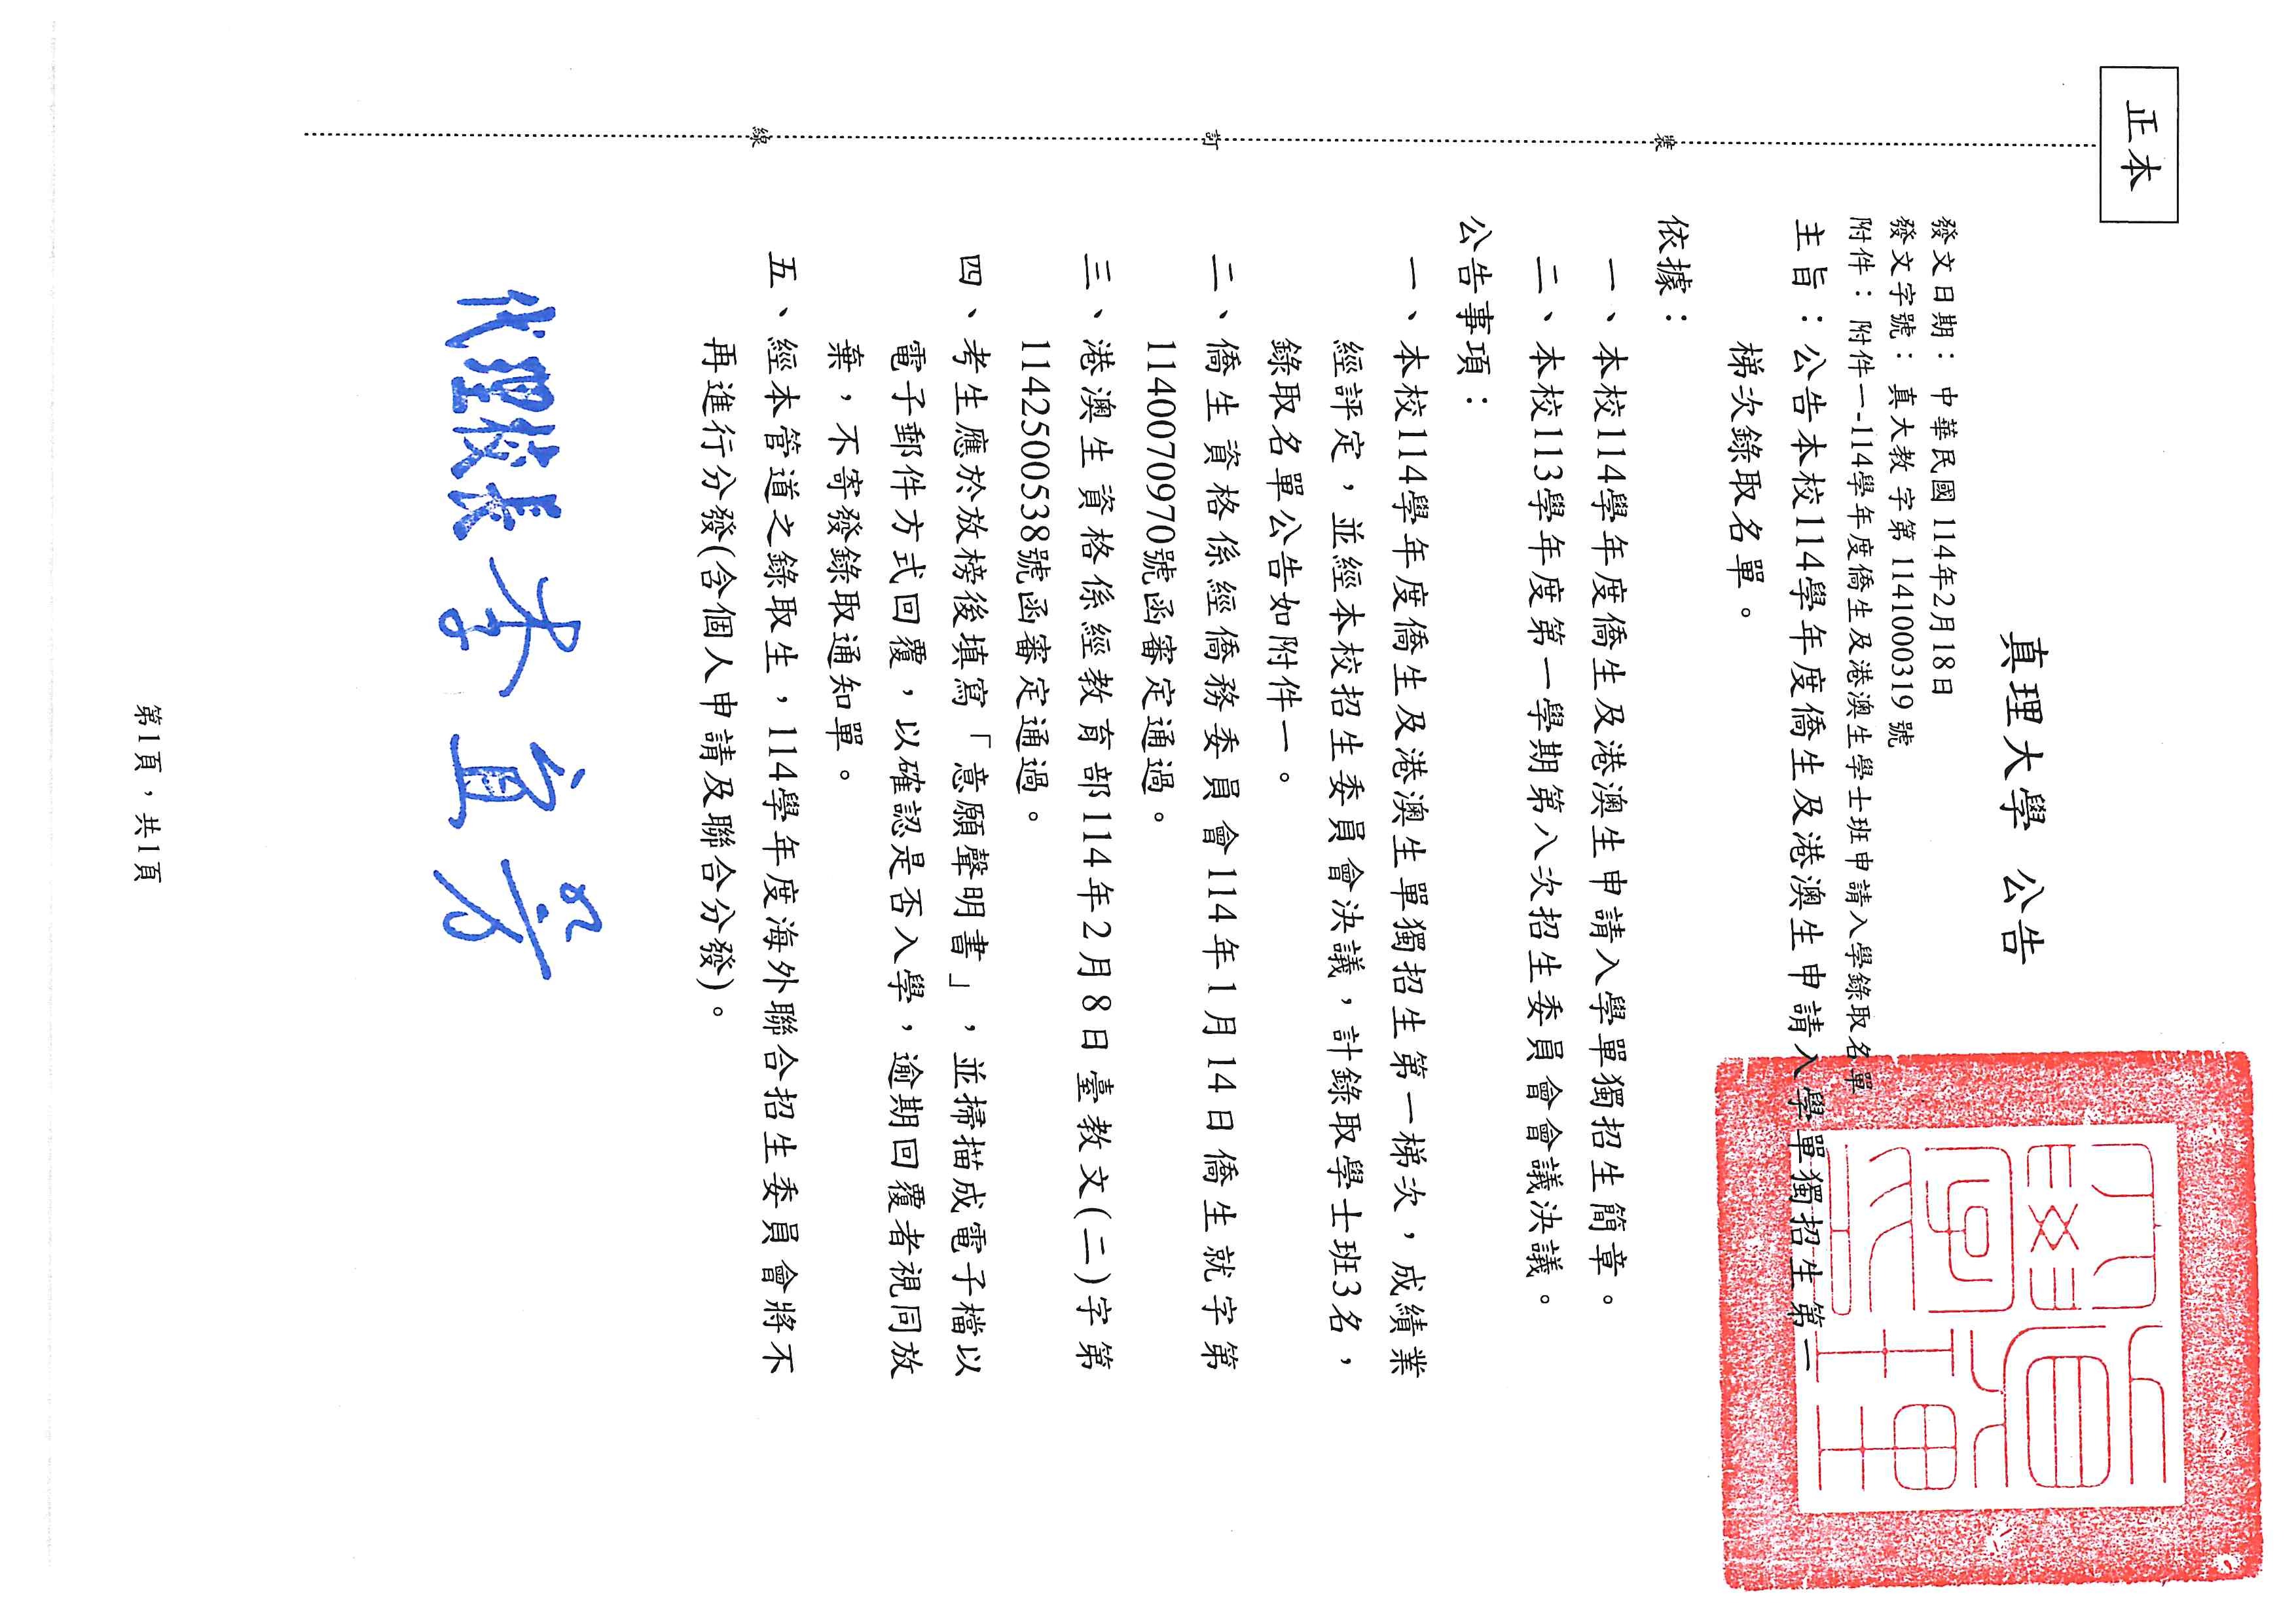 正本
真理大學 公告
發文日期：中華民國114年2月18日
發文字號：真大教字第1141000319號
附件：附件一-114學年度僑生及港澳生學士班申請入學錄取名單
主旨：公告本校114學年度僑生及港澳生申請入學單獨招生第一
梯次錄取名單。
依據：
一、本校114學年度僑生及港澳生申請入學單獨招生簡章。
二、本校113學年度第一學期第八次招生委員會會議決議。
公告事項：
一、本校114學年度僑生及港澳生單獨招生第一梯次，成績業
經評定，並經本校招生委員會決議，計錄取學士班3名，
錄取名單公告如附件一。
二、僑生資格係經僑務委員會114年1月14日僑生就字第
1140070970號函審定通過。
三、港澳生資格係經教育部114年2月8日臺教文(二)字第
1142500538號函審定通過。
四、考生應於放榜後填寫「意願聲明書」，並掃描成電子檔以
電子郵件方式回覆，以確認是否入學，逾期回覆者視同放
棄，不寄發錄取通知單。
五、經本管道之錄取生，114學年度海外聯合招生委員會將不
再進行分發(含個人申請及聯合分發)。
代理校長
第1頁，共1頁
裝
訂
線